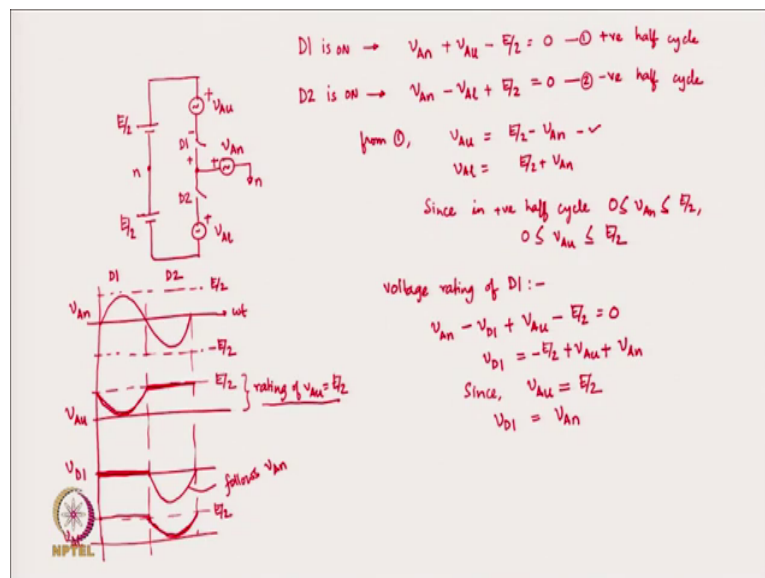 D1 is ON → v_An + v_Au - E/2 = 0 —① +ve half cycle
D2 is ON → v_An - v_Al + E/2 = 0 —② -ve half cycle
from ①, v_Au = E/2 - v_An - ✓
v_Al = E/2 + v_An
Since in +ve half cycle 0 ≤ v_An ≤ E/2,
0 ≤ v_Au ≤ E/2
voltage rating of D1 :-
v_An - v_D1 + v_Au - E/2 = 0
v_D1 = -E/2 + v_Au + v_An
Since, v_Au = E/2
v_D1 = v_An
+ v_Au
E/2
-
D1
v_An
n
+
+
n
D2
E/2
+ v_Al
D1 D2
E/2
v_An
ωt
-E/2
E/2 } rating of v_Au = E/2
v_Au
v_D1
follows v_An
E/2
NPTEL